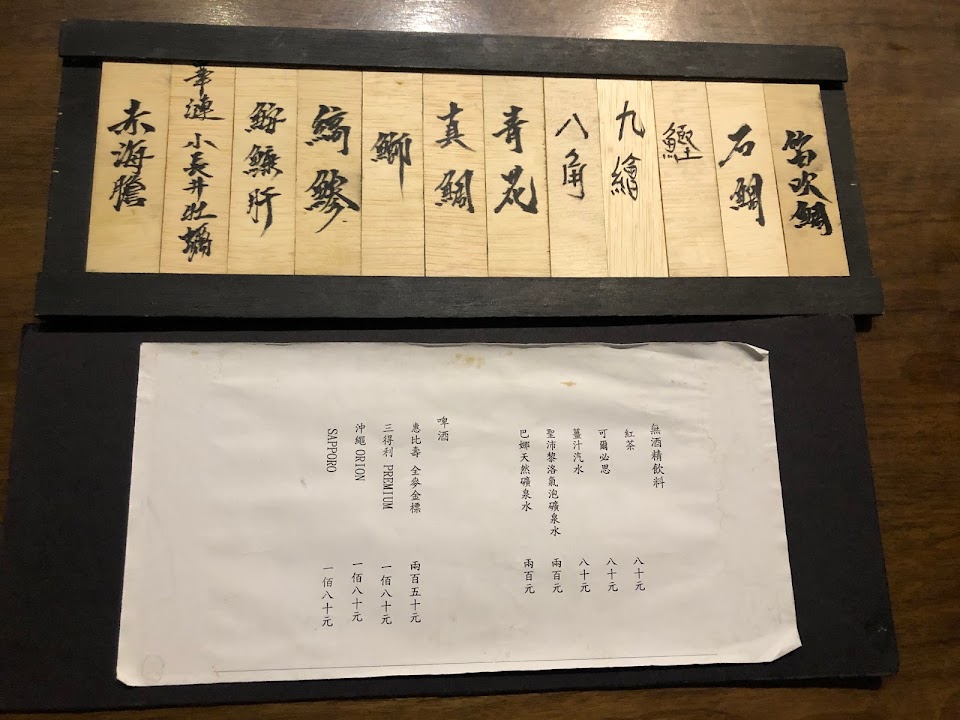 笛吹鯛
石鯛
鰹
九繪
八角
青花
真鯛
鰤
縞鰺
鮟鱇肝
華漣 小長井牡蠣
赤海膽
無酒精飲料
紅茶 八十元
可爾必思 八十元
薑汁汽水 八十元
聖沛黎洛氣泡礦泉水 兩百元
巴娜天然礦泉水 兩百元
啤酒
惠比壽 全麥金標 兩百五十元
三得利 PREMIUM 一佰八十元
沖繩 ORION 一佰八十元
SAPPORO 一佰八十元